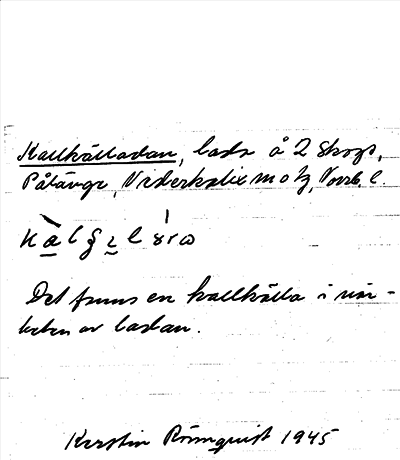 Kallkälladan, lada å 2 Skogs,
Påläng, Nederkalix sn o tg, Norrb. l.
Det finns en kallkälla i när-
heten av ladan.
Kerstin Rönnquist 1945